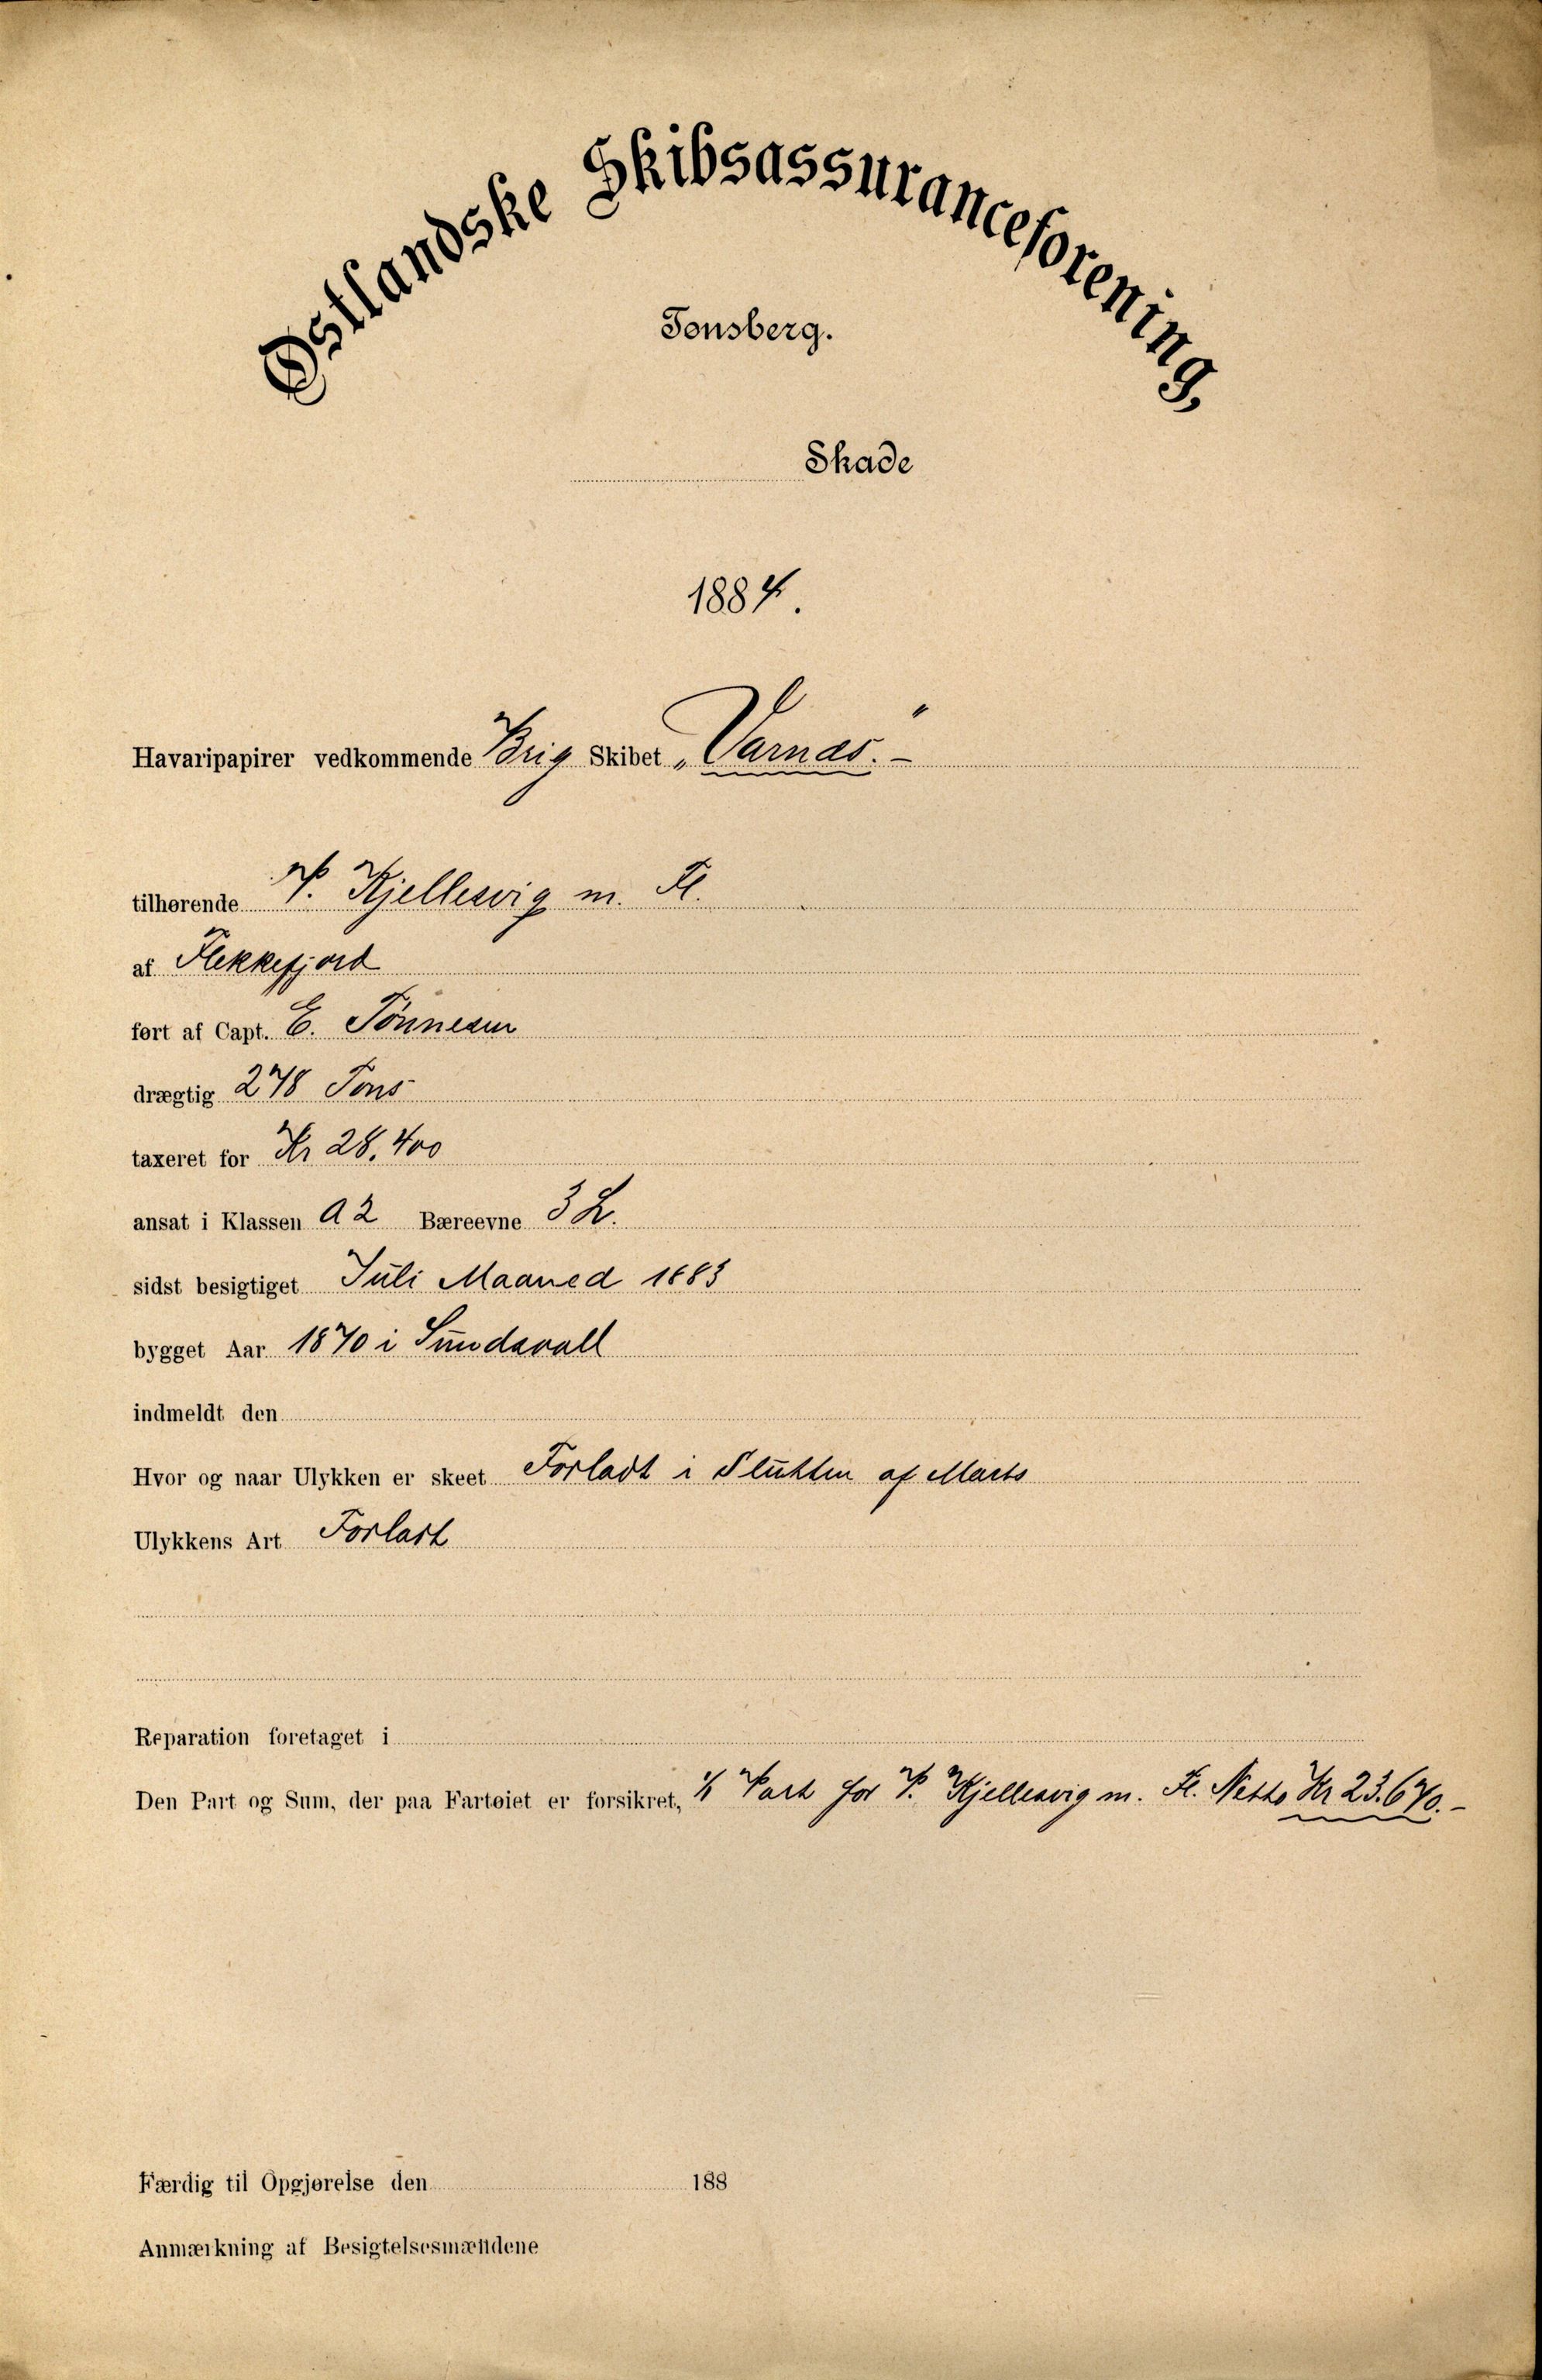 Østlandske Skibsassuranceforening,
Tønsberg.
Skade
1884.
Havaripapirer vedkommende Brig Skibet „Varnæs.“ –
tilhørende P. Kjellesvig m. Fl.
af Flekkefjord
ført af Capt. E. Tönnesen
drægtig 278 Tons
taxeret for Kr 28.400
ansat i Klassen A 2 Bæreevne 3 L.
sidst besigtiget Juli Maaned 1883
bygget Aar 1870 i Sundsvall
indmeldt den
Hvor og naar Ulykken er skeet Forladt i Slutten af Marts
Ulykkens Art Forladt
Reparation foretaget i
Den Part og Sum, der paa Fartøiet er forsikret, 1/1 Part for P. Kjellesvig m. Fl. Netto Kr 23.670. –
Færdig til Opgjørelse den 188
Anmærkning af Besigtelsesmændene